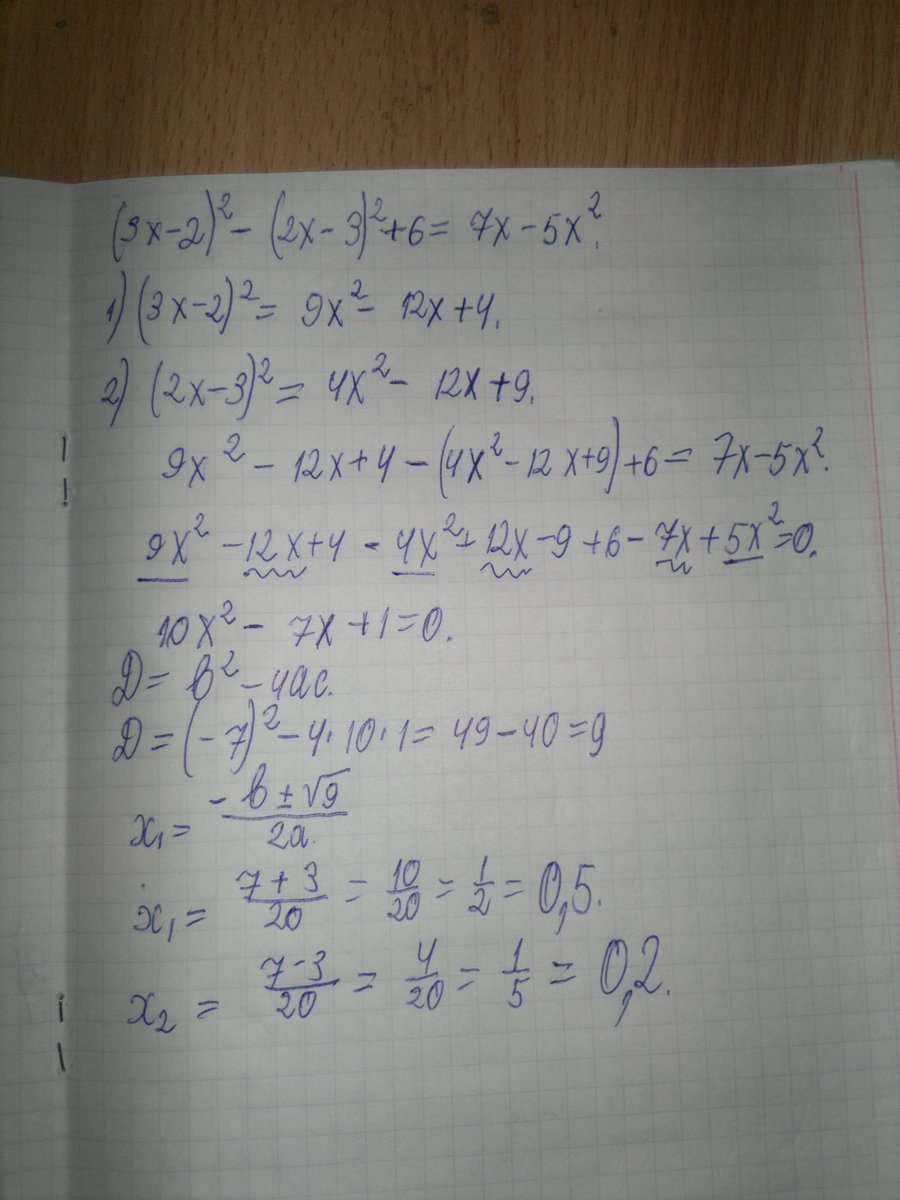 (3x-2)² - (2x-3)² + 6 = 7x - 5x².
1) (3x-2)² = 9x² - 12x + 4.
2) (2x-3)² = 4x² - 12x + 9.
9x² - 12x + 4 - (4x² - 12x + 9) + 6 = 7x - 5x².
9x² - 12x + 4 - 4x² + 12x - 9 + 6 - 7x + 5x² = 0.
10x² - 7x + 1 = 0.
Д = b² - 4ac.
Д = (-7)² - 4·10·1 = 49 - 40 = 9
x₁ = (-b ± √9)/2a.
x₁ = (7+3)/20 = 10/20 = 1/2 = 0,5.
x₂ = (7-3)/20 = 4/20 = 1/5 = 0,2.